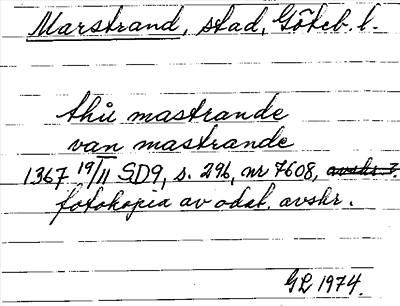 Marstrand, stad, Göteb. l.
thu̇ mastrande
van mastrande
1367 19/11 SD9, s. 296, nr 7608, avskr. ?.
fotokopia av odat. avskr.
GL 1974.